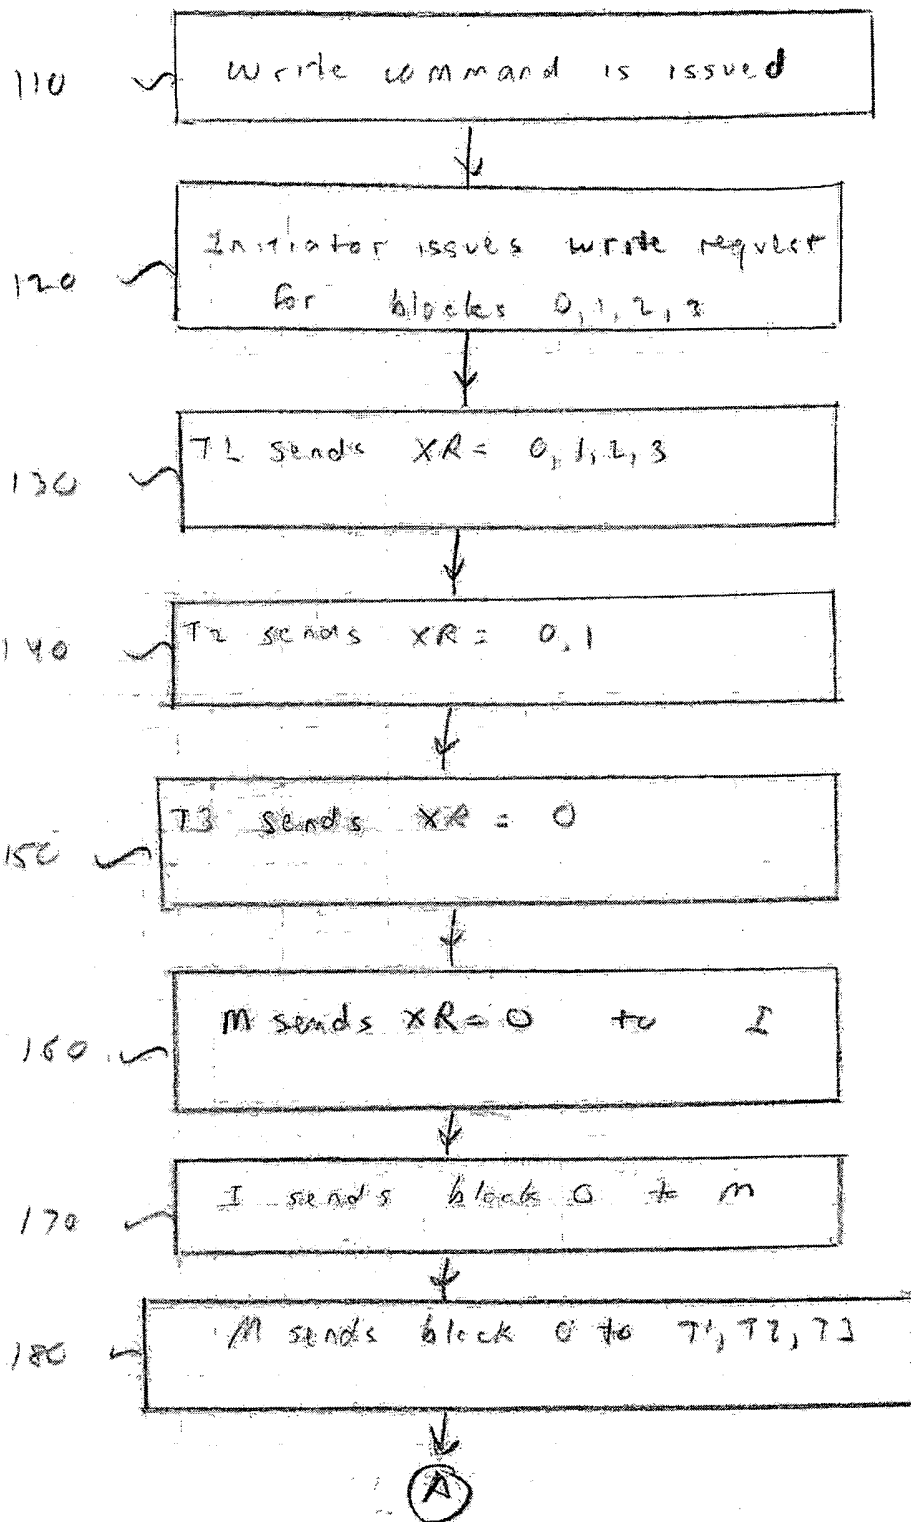 110
Write command is issued
120
Initiator issues write request
for blocks 0, 1, 2, 3
130
T1 sends XR = 0, 1, 2, 3
140
T2 sends XR = 0, 1
150
T3 sends XR = 0
160
M sends XR = 0 to I
170
I sends block 0 to M
180
M sends block 0 to T1, T2, T3
A